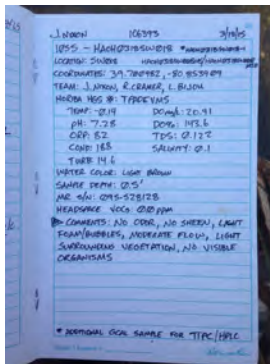 J. NIXON 106393 3/18/15
1055 - HAOH0318SW018 * HAOH0318SW018-1
LOCATION: SW018
COORDINATES: 39.700982, -80.853909
TEAM: J. NIXON, R. CRAMER, L. BIJOU
HORIBA MSS #: TPAREVMS
TEMP: -0.19 DO mg/L: 20.91
pH: 7.28 DO%: 143.6
ORP: 82 TDS: 0.122
COND: 188 SALINITY: 0.1
TURB: 14.6
WATER COLOR: LIGHT BROWN
SAMPLE DEPTH: 0.5'
MR S/N: 095-528128
HEADSPACE VOCs: 0.0 ppm
COMMENTS: NO ODOR, NO SHEEN, LIGHT
FOAM/BUBBLES, MODERATE FLOW, LIGHT
SURROUNDING VEGETATION, NO VISIBLE
ORGANISMS
* ADDITIONAL SAMPLE FOR